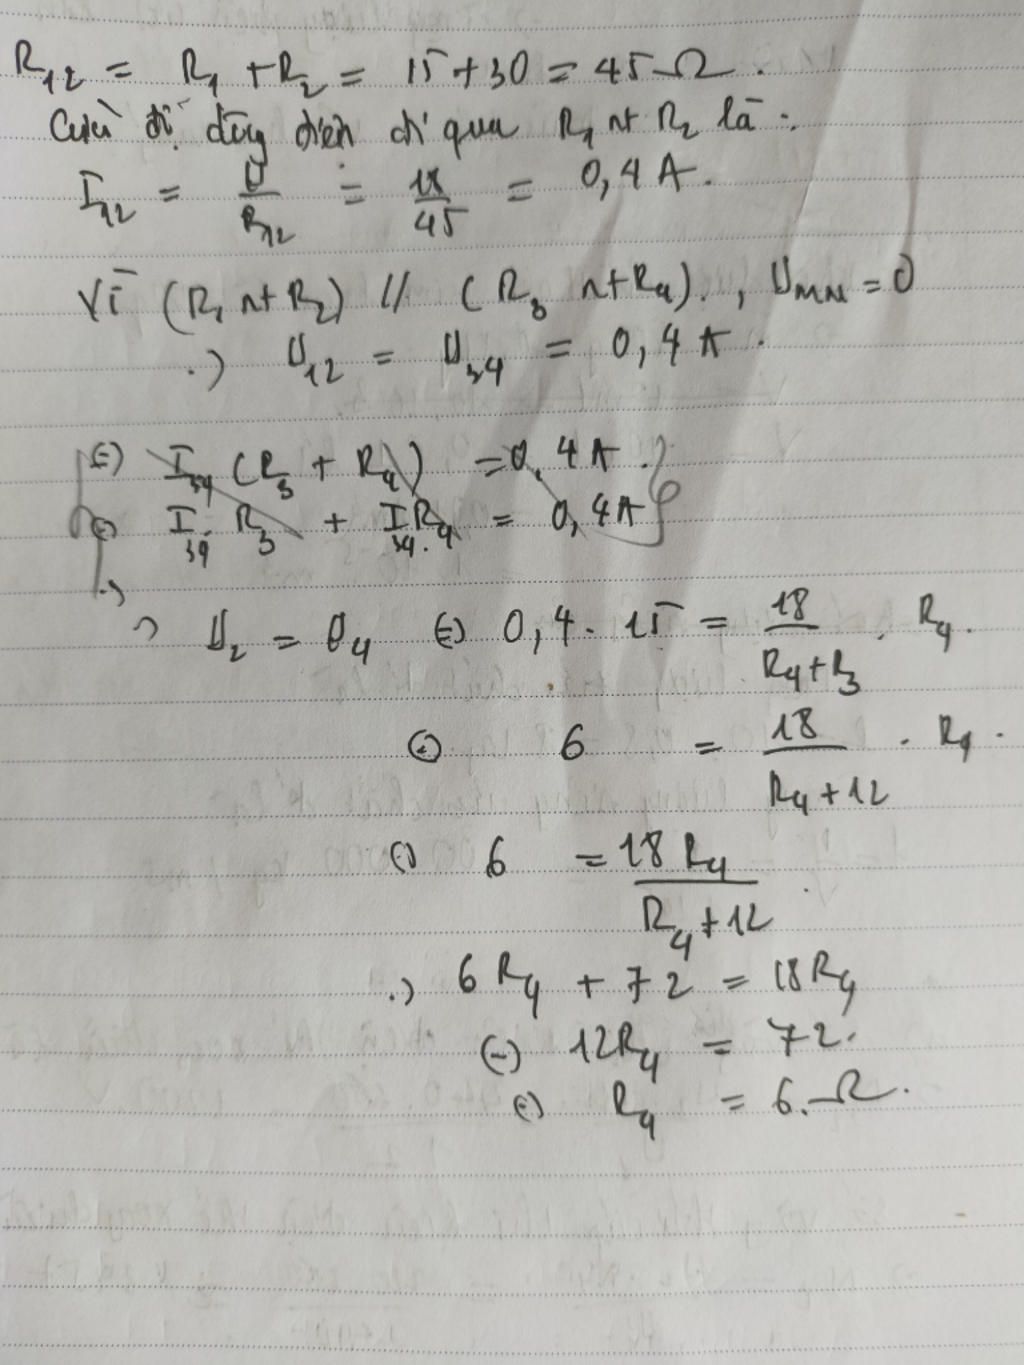 R₁₂ = R₁ + R₂ = 15 + 30 = 45 Ω.
Cườ độ dòng điện đi qua R₁ nt R₂ là:
I₁₂ = U/R₁₂ = 18/45 = 0,4 A.
Vì (R₁ nt R₂) // (R₃ nt R₄). , U_MN = 0
U₁₂ = U₃₄ = 0,4 A.
(=) I₃₄ (R₃ + R₄) = 0,4 A.
(=) I₃₄. R₃ + I₃₄. R₄ = 0,4 A
U₂ = U₄ (=) 0,4. 15 = 18/(R₄ + R₃) . R₄.
(=) 6 = 18/(R₄ + 12) . R₄.
(=) 6 = 18 R₄/(R₄ + 12)
6 R₄ + 72 = 18 R₄
(=) 12 R₄ = 72.
(=) R₄ = 6. Ω.